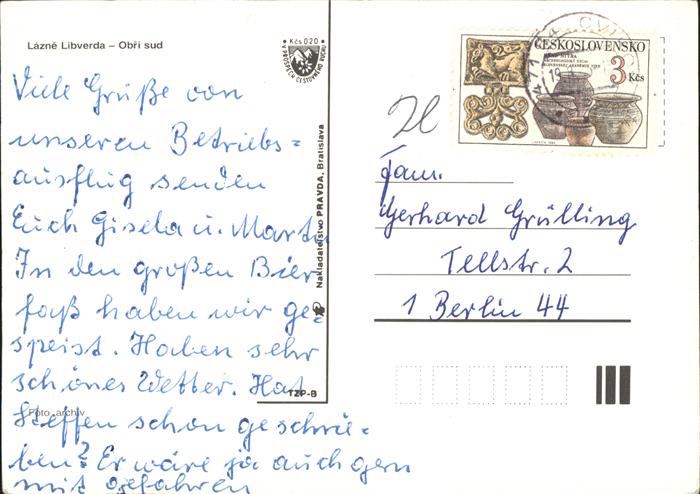 Lázně Libverda – Obří sud
Kčs 0,20
Viele Grüße von
unseren Betriebs=
ausflug senden
Euch Gisela u. Martin
In den großen Bier-
faß haben wir ge=
speist. Haben sehr
schönes Wetter. Hat
Steffen schon geschrie=
ben? Er wäre ja auch gern
mit gefahren
Foto archív
Nakladateľstvo PRAVDA, Bratislava
TZP-B
ČESKOSLOVENSKO
NITRA
3 Kčs
Fam.
Gerhard Grülling
Tellstr. 2
1 Berlin 44